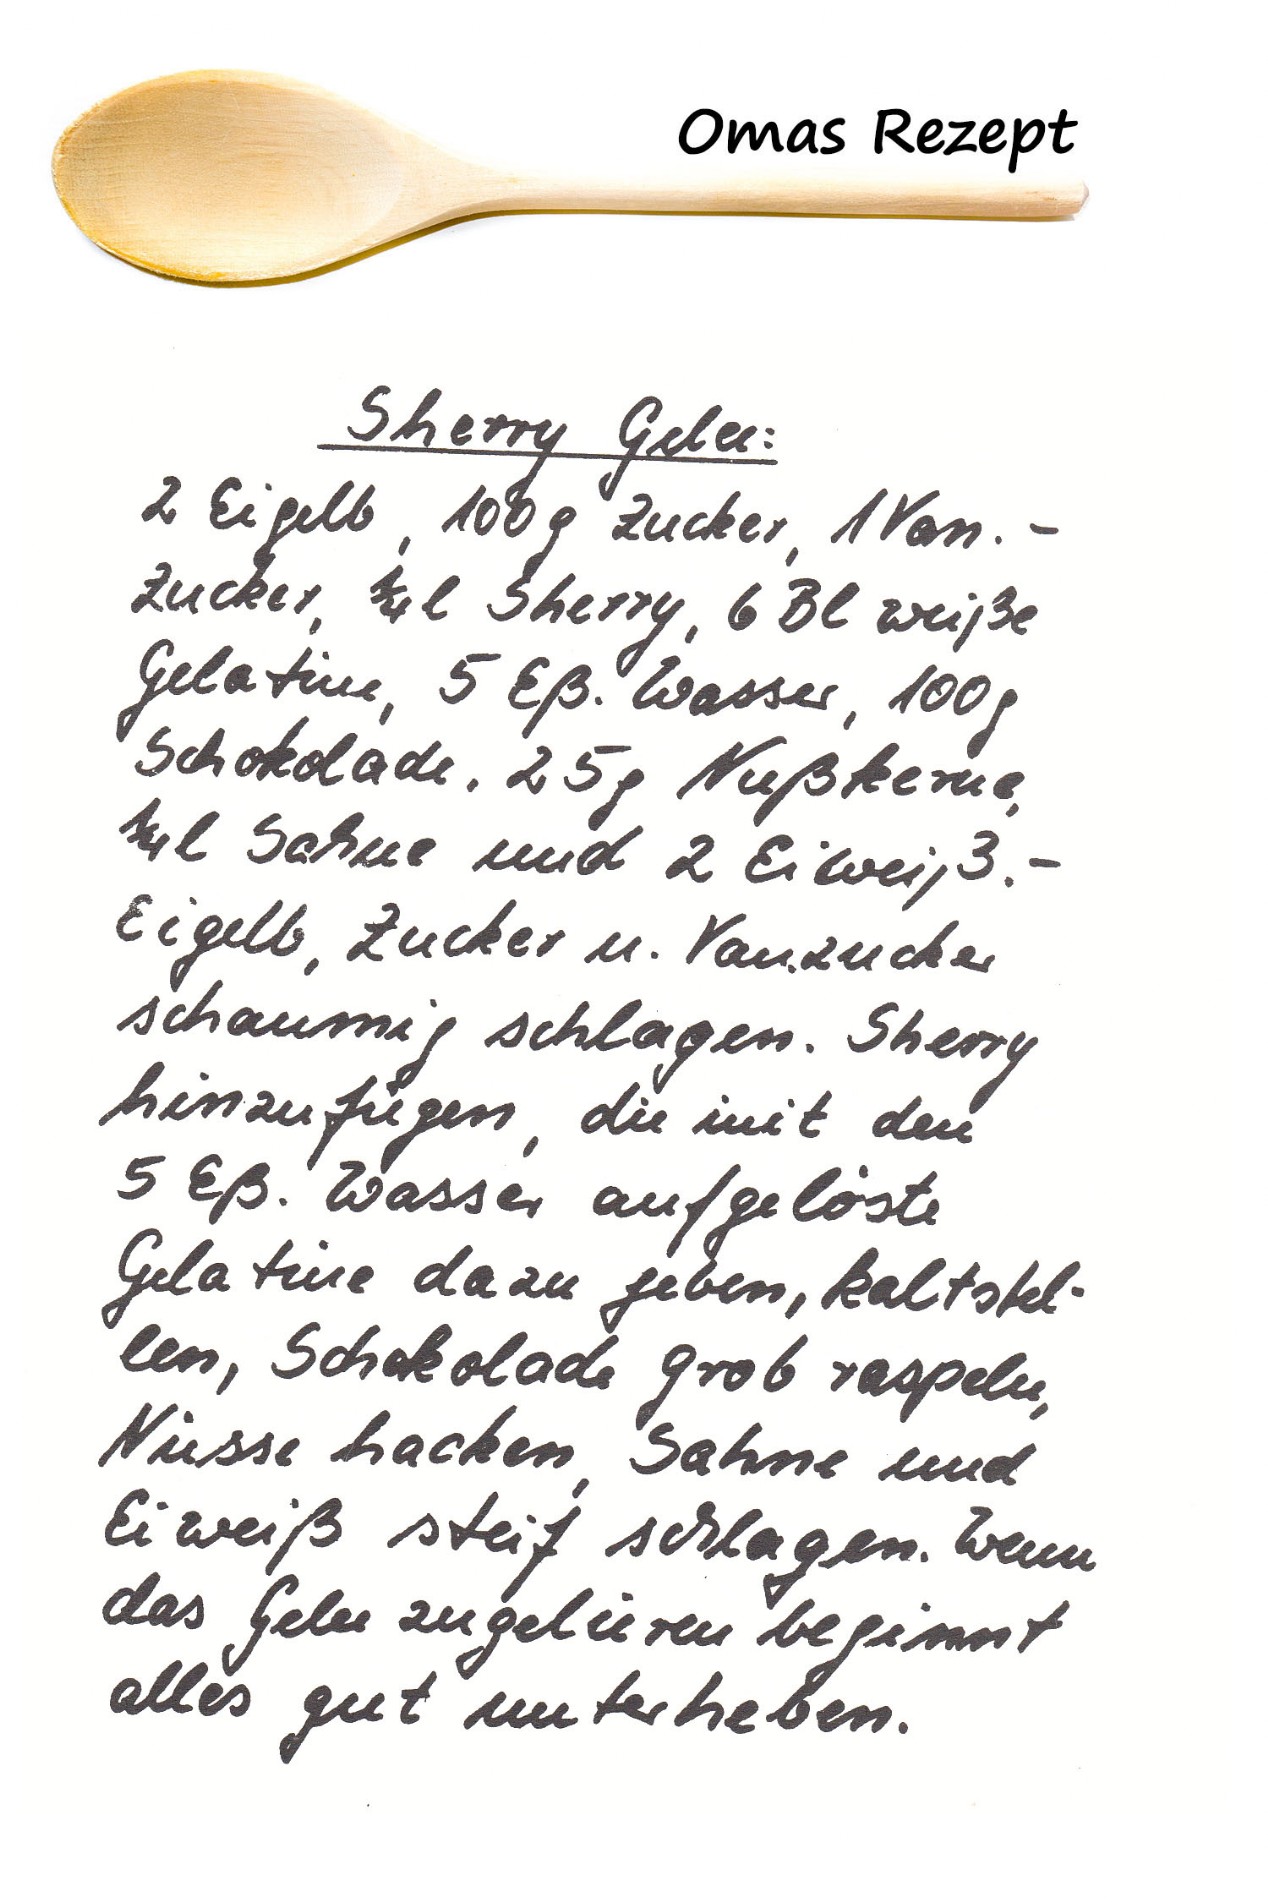 Omas Rezept
Sherry Gelee:
2 Eigelb, 100g Zucker, 1 Van.-
Zucker, ¼ l Sherry, 6 Bl weiße
Gelatine, 5 Eß. Wasser, 100g
Schokolade, 25g Nußkerne,
¼ l Sahne und 2 Eiweiß.-
Eigelb, Zucker u. Van.zucker
schaumig schlagen. Sherry
hinzufügen, die mit den
5 Eß. Wasser aufgelöste
Gelatine dazu geben, kaltstel-
len, Schokolade grob raspeln,
Nüsse hacken, Sahne und
Eiweiß steif schlagen. Wenn
das Gelee zu gelieren beginnt
alles gut unterheben.